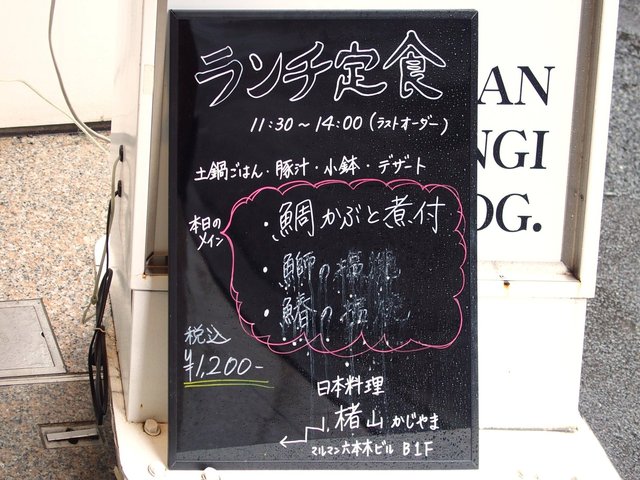 ランチ定食
11:30～14:00(ラストオーダー)
土鍋ごはん・豚汁・小鉢・デザート
本日の
メイン
・鯛かぶと煮付
・鰤の塩焼
・鰆の塩焼
税込
¥1,200-
日本料理
楮山 かじやま
マルマン六本木ビル B1F
AN
NGI
OG.